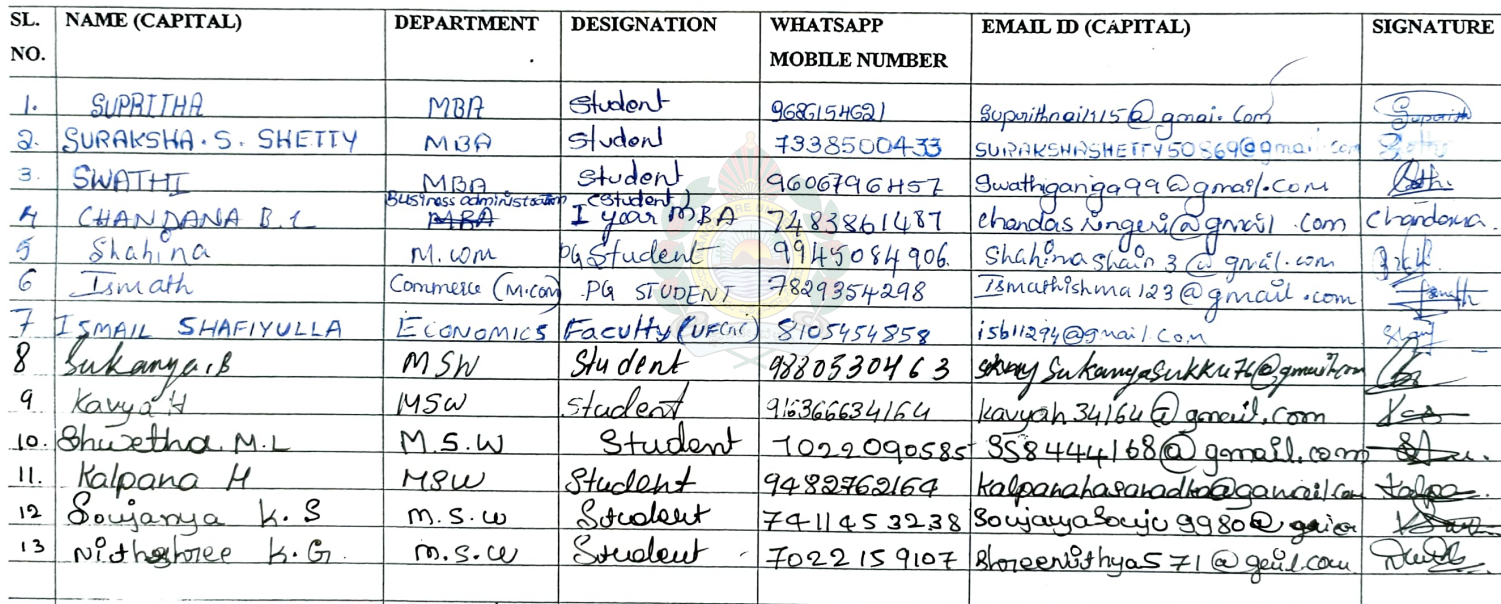 SL. NO. NAME (CAPITAL) DEPARTMENT DESIGNATION WHATSAPP MOBILE NUMBER EMAIL ID (CAPITAL) SIGNATURE
1. SUPRITHA MBA Student 9686154621 Suprithnail115@gmai.Com
2. SURAKSHA.S. SHETTY MBA Student 7338500433 SURAKSHASHETTY50869@gmai.com
3. SWATHI MBA Student 9606796457 Swathiganga99@gmail.Com
4 CHANDANA B.L Business administration MBA (Student) I year MBA 7483861487 chandasringeri@gmail.com Chandana.
5 Shahina M.com PG Student 9945084906. Shahinashain3@gmail.com
6 Ismath Commerce (M.com) PG STUDENT 7829354298 Ismathishma123@gmail.com
7 ISMAIL SHAFIYULLA ECONOMICS Faculty (UFCNC) 8105454858 isb11294@gmail.Com
8 Sukanya.B MSW Student 9880530463 Sukanyasukku76@gmail.com
9 Kavya H MSW Student 916366634164 kavyah34164@gmail.com
10. Shwetha M.L M.S.W Student 7022090585 958444168@gmail.com
11. Kalpana H MSW Student 9482762164 kalpanahasanadka@gamail.com
12 Soujanya K.S M.S.W Student 7411453238 SoujanyaSouju9980@
13 Nithyshree K.G. M.S.W Student 7022159107 Shreenithya571@